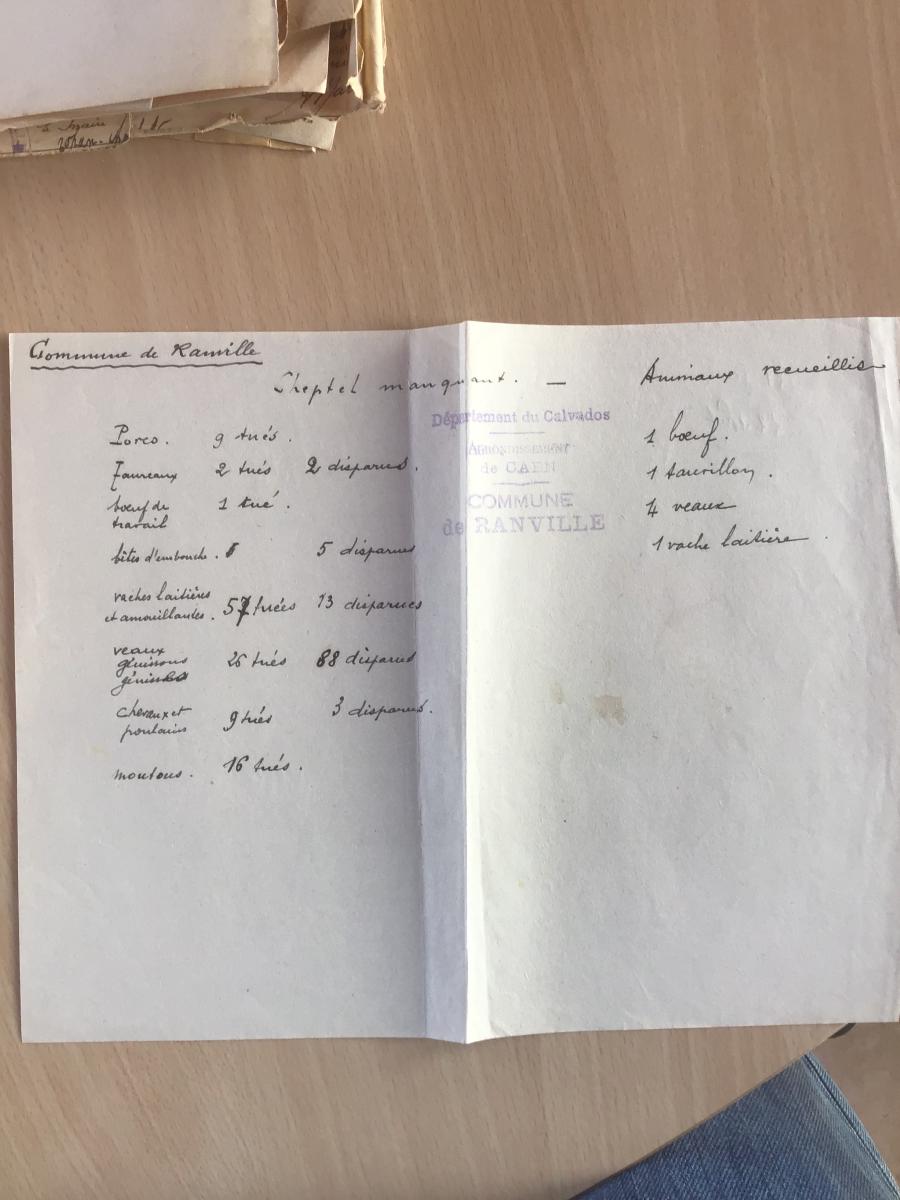 Commune de Ranville
Cheptel manquant. —
Porcs. 9 tués.
Taureaux 2 tués 2 disparus.
bœuf de
travail 1 tué.
bêtes d'embouche. 5 disparus
vaches laitières
et amouillantes. 57 tuées 13 disparues
veaux
génissons
génisses 26 tués 88 disparus
chevaux et
poulains 9 tués 3 disparus.
moutons. 16 tués.
Département du Calvados
ARRONDISSEMENT
de CAEN
COMMUNE
de RANVILLE
Animaux recueillis
1 bœuf.
1 taurillon.
4 veaux
1 vache laitière.